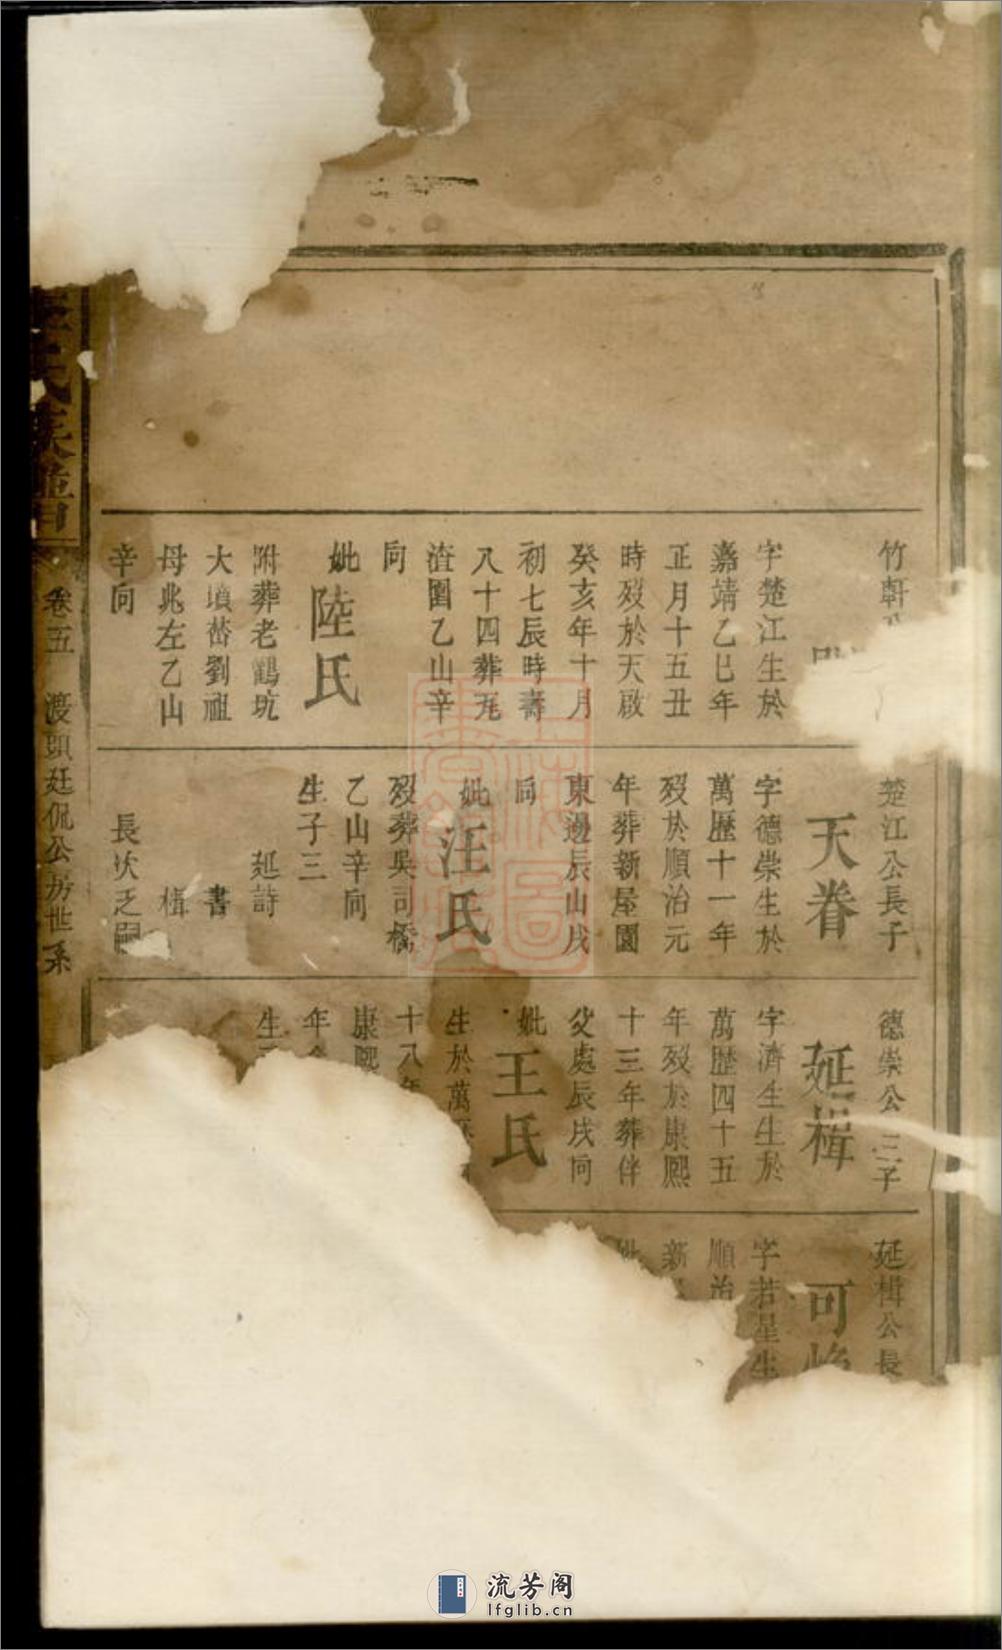 竹軒
字楚江生於
嘉靖乙巳年
正月十五丑
時歿於天啟
癸亥年十月
初七辰時壽
八十四葬瓦
渣圍乙山辛
向
妣陸氏
附葬老鸛坑
大墳嵆劉祖
母兆左乙山
辛向
楚江公長子
天眷
字德崇生於
萬歷十一年
歿於順治元
年葬新屋園
東邊辰山戌
向
妣汪氏
歿葬吳司橋
乙山辛向
生子三
延詩
書
楫
長次乏嗣
德崇公三子
延楫
字濟生生於
萬歷四十五
年歿於康熙
十三年葬伴
父處辰戌向
妣王氏
生於萬
十八年
康熙
年
生
延楫公長
可
字若星生
順治
新
妣
氏族譜
卷五
渡頭廷侃公房世系
流芳阁
lfglib.cn